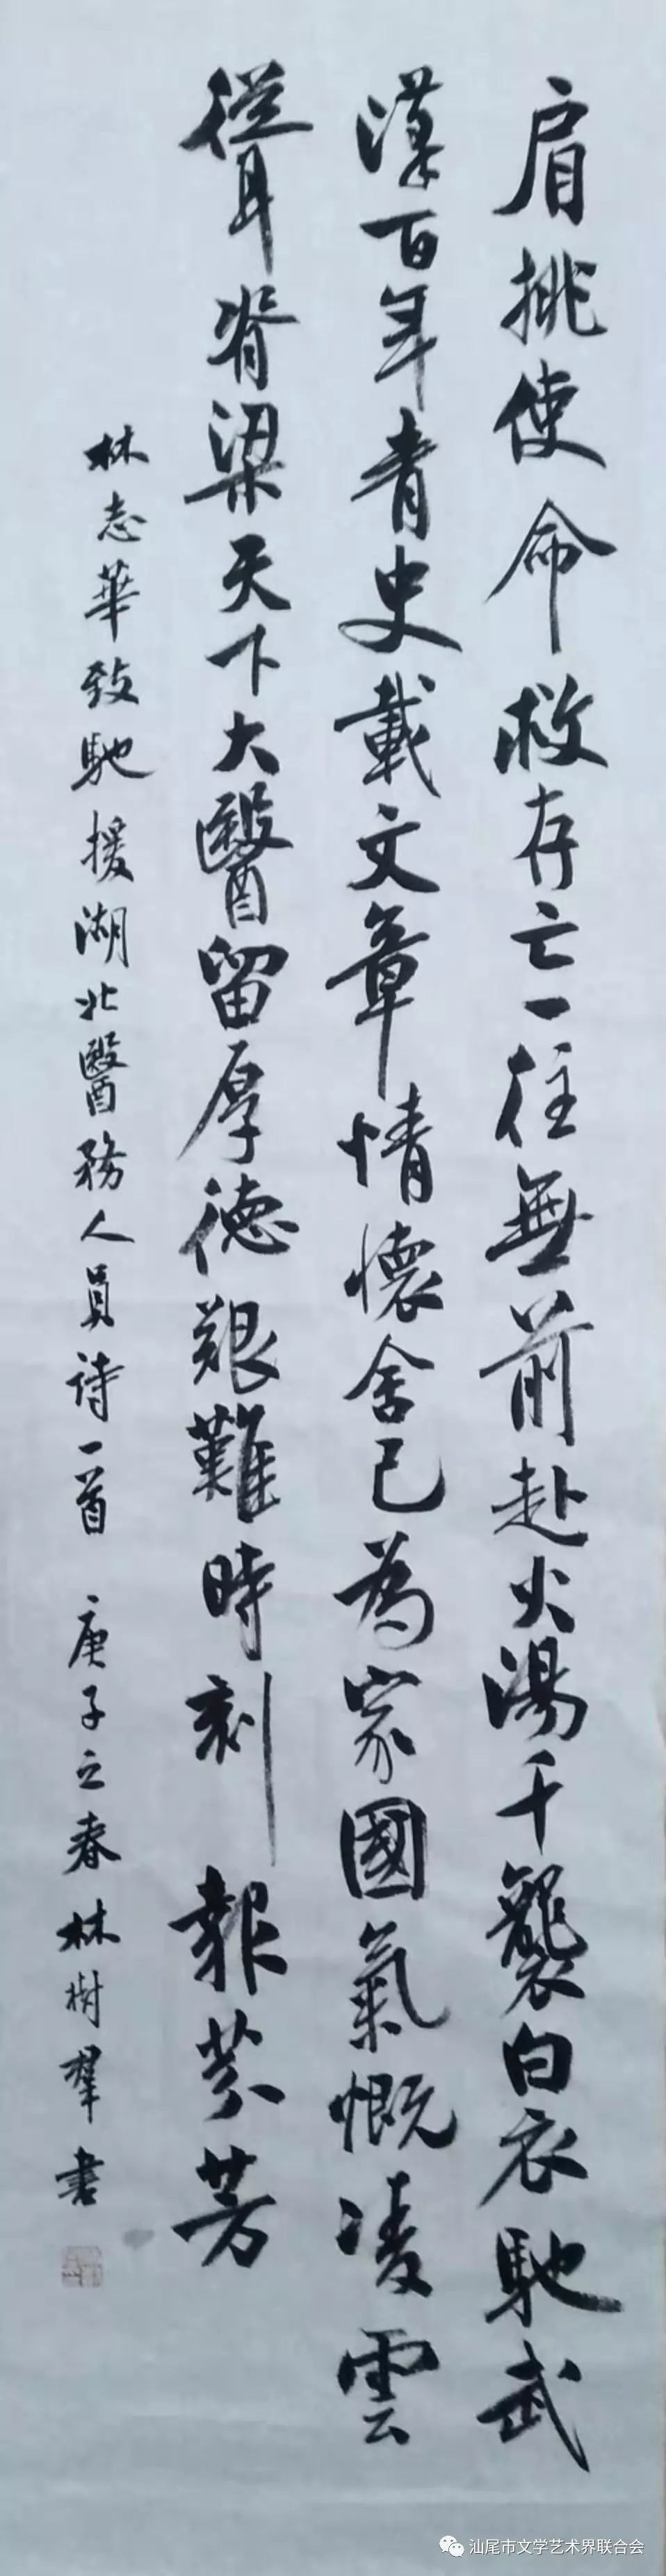 肩挑使命救存亡一往無前赴火湯千襲白衣馳武
漢百年青史載文章情懷舍己為家國氣慨凌雲
聳脊梁天下大醫留厚德艱難時刻報芬芳
林志華致馳援湖北醫務人員詩一首 庚子之春林樹群書
汕尾市文学艺术界联合会